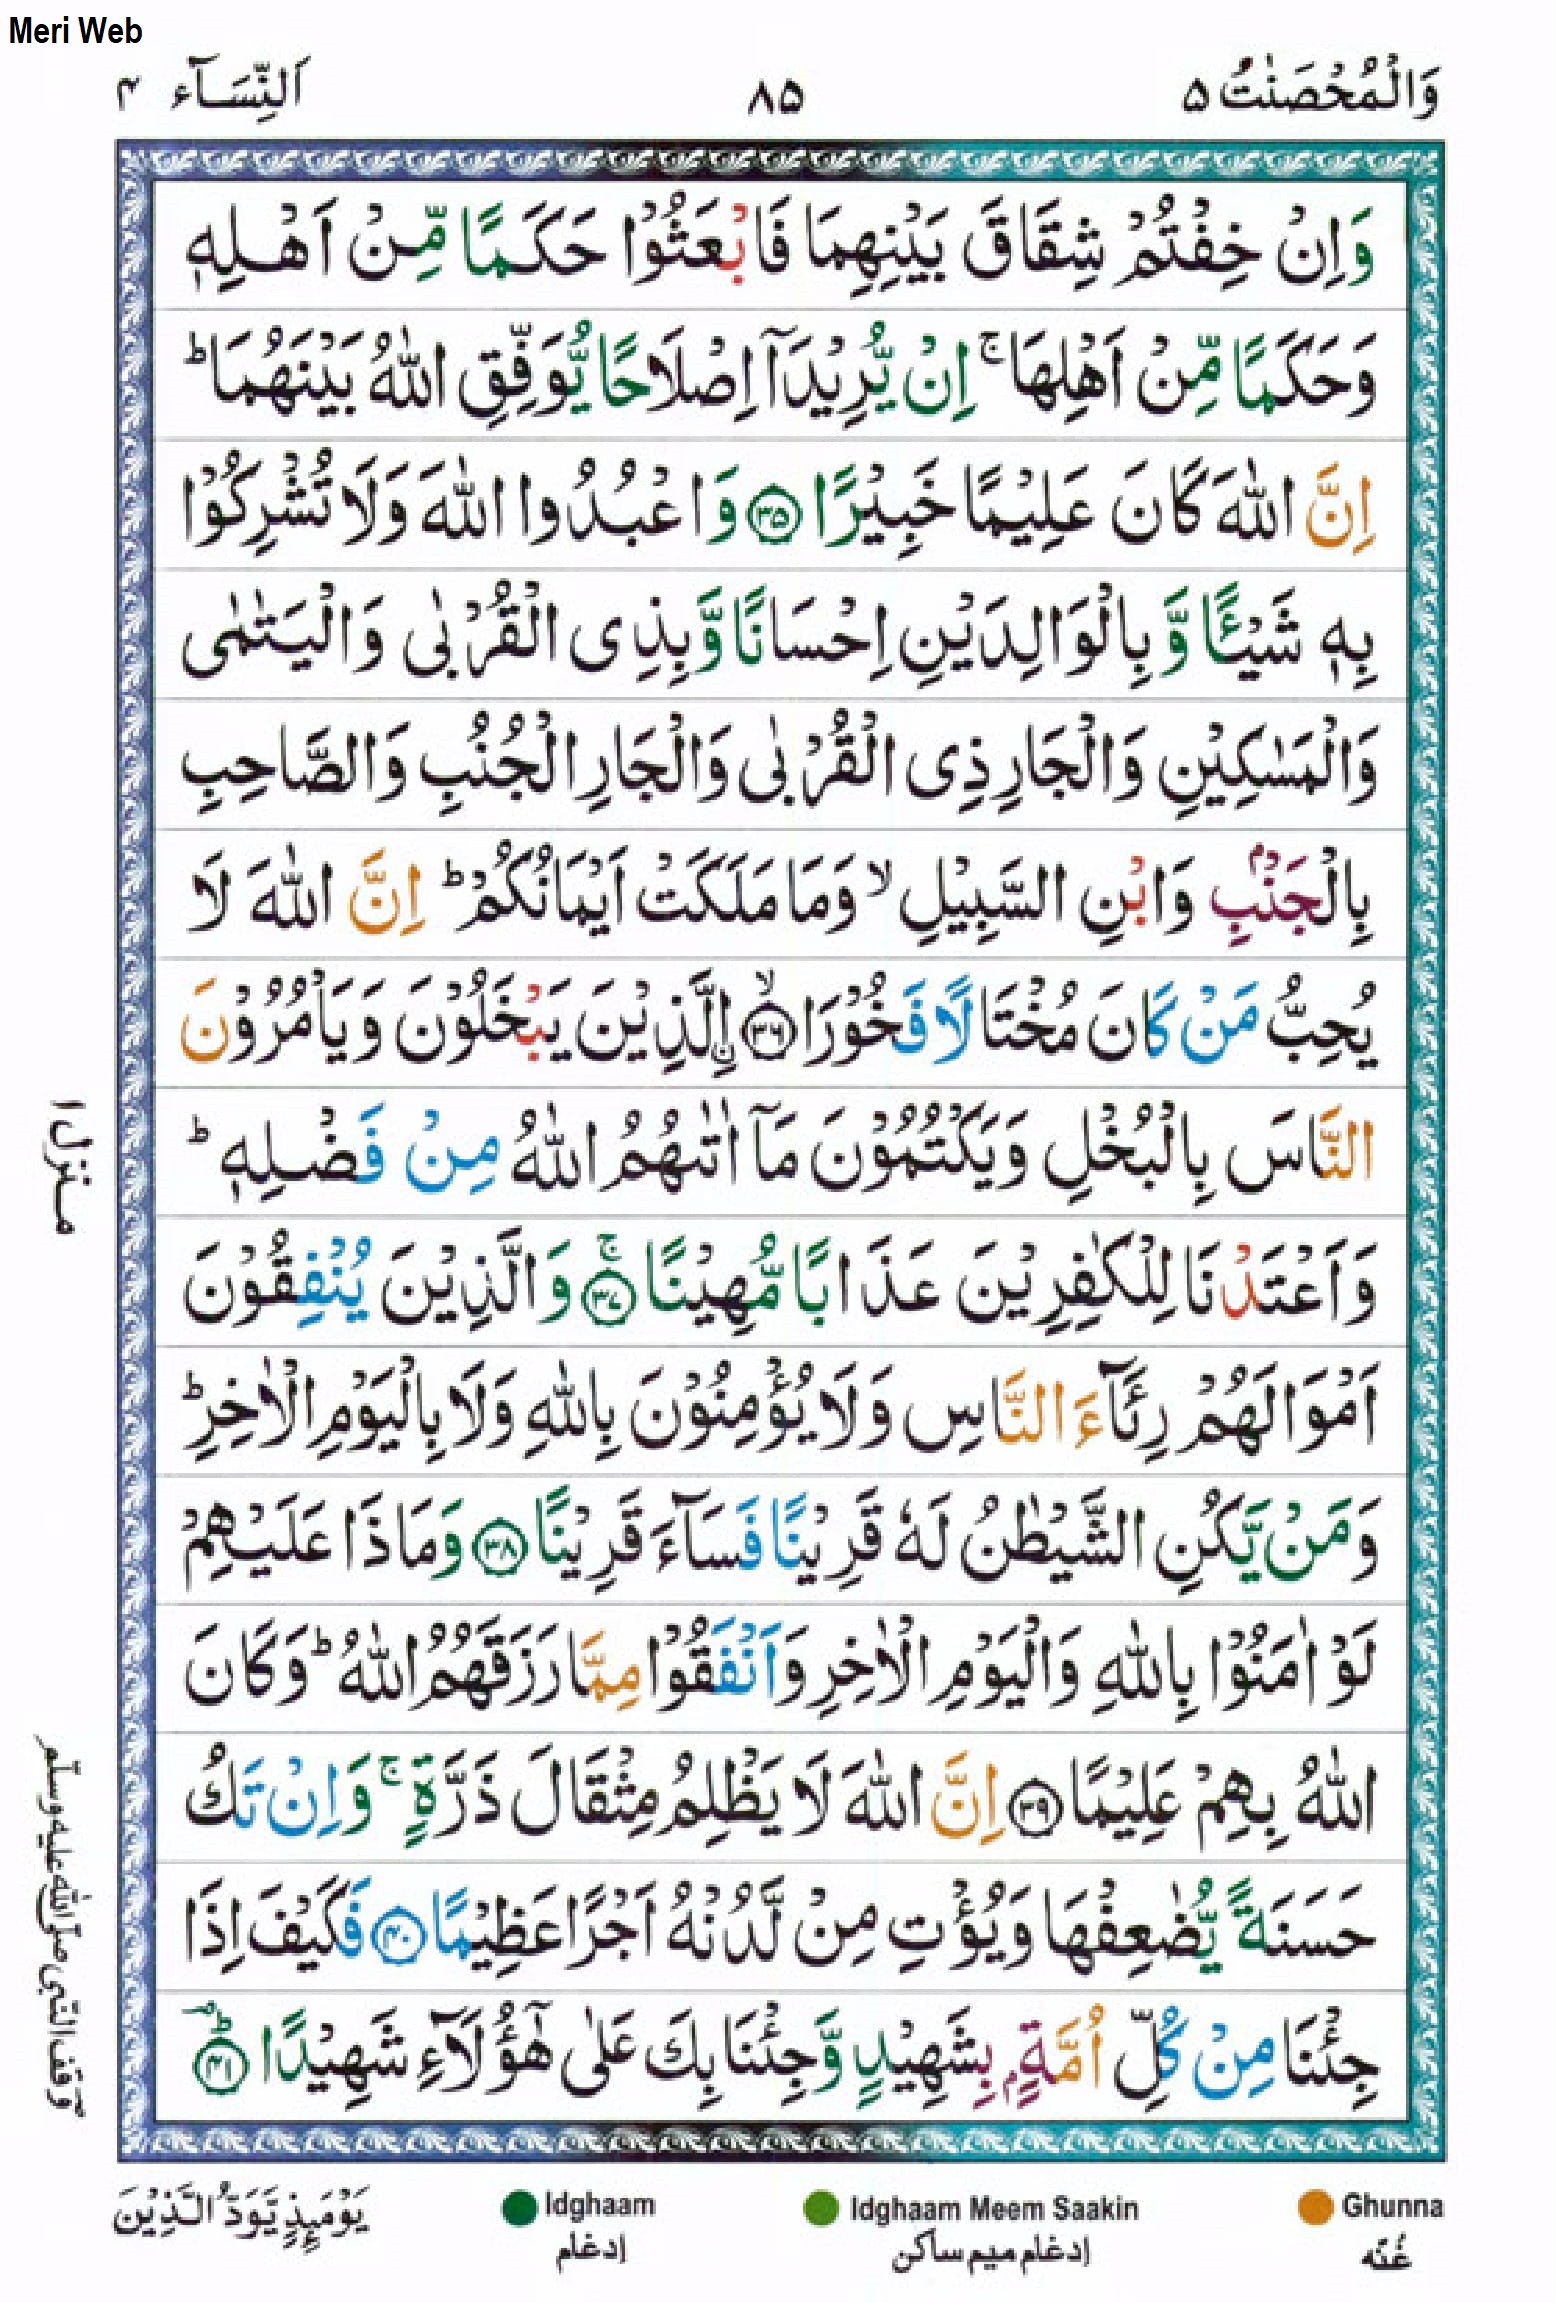 Meri Web
وَالْمُحْصَنٰتُ ۵
۸۵
اَلنِّسَآء ۴
وَاِنْ خِفْتُمْ شِقَاقَ بَيْنِهِمَا فَابْعَثُوْا حَكَمًا مِّنْ اَهْلِهٖ
وَحَكَمًا مِّنْ اَهْلِهَا ۚ اِنْ يُّرِيْدَآ اِصْلَاحًا يُّوَفِّقِ اللّٰهُ بَيْنَهُمَا ؕ
اِنَّ اللّٰهَ كَانَ عَلِيْمًا خَبِيْرًا ﴿۳۵﴾ وَاعْبُدُوا اللّٰهَ وَلَا تُشْرِكُوْا
بِهٖ شَيْـًٔا وَّبِالْوَالِدَيْنِ اِحْسَانًا وَّبِذِى الْقُرْبٰى وَالْيَتٰمٰى
وَالْمَسٰكِيْنِ وَالْجَارِ ذِى الْقُرْبٰى وَالْجَارِ الْجُنُبِ وَالصَّاحِبِ
بِالْجَنْۢبِ وَابْنِ السَّبِيْلِ ۙ وَمَا مَلَكَتْ اَيْمَانُكُمْ ؕ اِنَّ اللّٰهَ لَا
يُحِبُّ مَنْ كَانَ مُخْتَالًا فَخُوْرَا ۙ﴿۳۶﴾ اۨلَّذِيْنَ يَبْخَلُوْنَ وَيَاْمُرُوْنَ
النَّاسَ بِالْبُخْلِ وَيَكْتُمُوْنَ مَآ اٰتٰىهُمُ اللّٰهُ مِنْ فَضْلِهٖ ؕ
وَاَعْتَدْنَا لِلْكٰفِرِيْنَ عَذَابًا مُّهِيْنًا ۚ﴿۳۷﴾ وَالَّذِيْنَ يُنْفِقُوْنَ
اَمْوَالَهُمْ رِئَآءَ النَّاسِ وَلَا يُؤْمِنُوْنَ بِاللّٰهِ وَلَا بِالْيَوْمِ الْاٰخِرِ ؕ
وَمَنْ يَّكُنِ الشَّيْطٰنُ لَهٗ قَرِيْنًا فَسَآءَ قَرِيْنًا ﴿۳۸﴾ وَمَاذَا عَلَيْهِمْ
لَوْ اٰمَنُوْا بِاللّٰهِ وَالْيَوْمِ الْاٰخِرِ وَاَنْفَقُوْا مِمَّا رَزَقَهُمُ اللّٰهُ ؕ وَكَانَ
اللّٰهُ بِهِمْ عَلِيْمًا ﴿۳۹﴾ اِنَّ اللّٰهَ لَا يَظْلِمُ مِثْقَالَ ذَرَّةٍ ۚ وَاِنْ تَكُ
حَسَنَةً يُّضٰعِفْهَا وَيُؤْتِ مِنْ لَّدُنْهُ اَجْرًا عَظِيْمًا ﴿۴۰﴾ فَكَيْفَ اِذَا
جِئْنَا مِنْ كُلِّ اُمَّةٍۢ بِشَهِيْدٍ وَّجِئْنَا بِكَ عَلٰى هٰٓؤُلَآءِ شَهِيْدًا ؕ﴿۴۱﴾
منزل ۱
وقف النبی صلی اللہ علیہ وسلم
يَوْمَئِذٍ يَّوَدُّ الَّذِيْنَ
Idghaam
ادغام
Idghaam Meem Saakin
ادغام میم ساکن
Ghunna
غُنّه